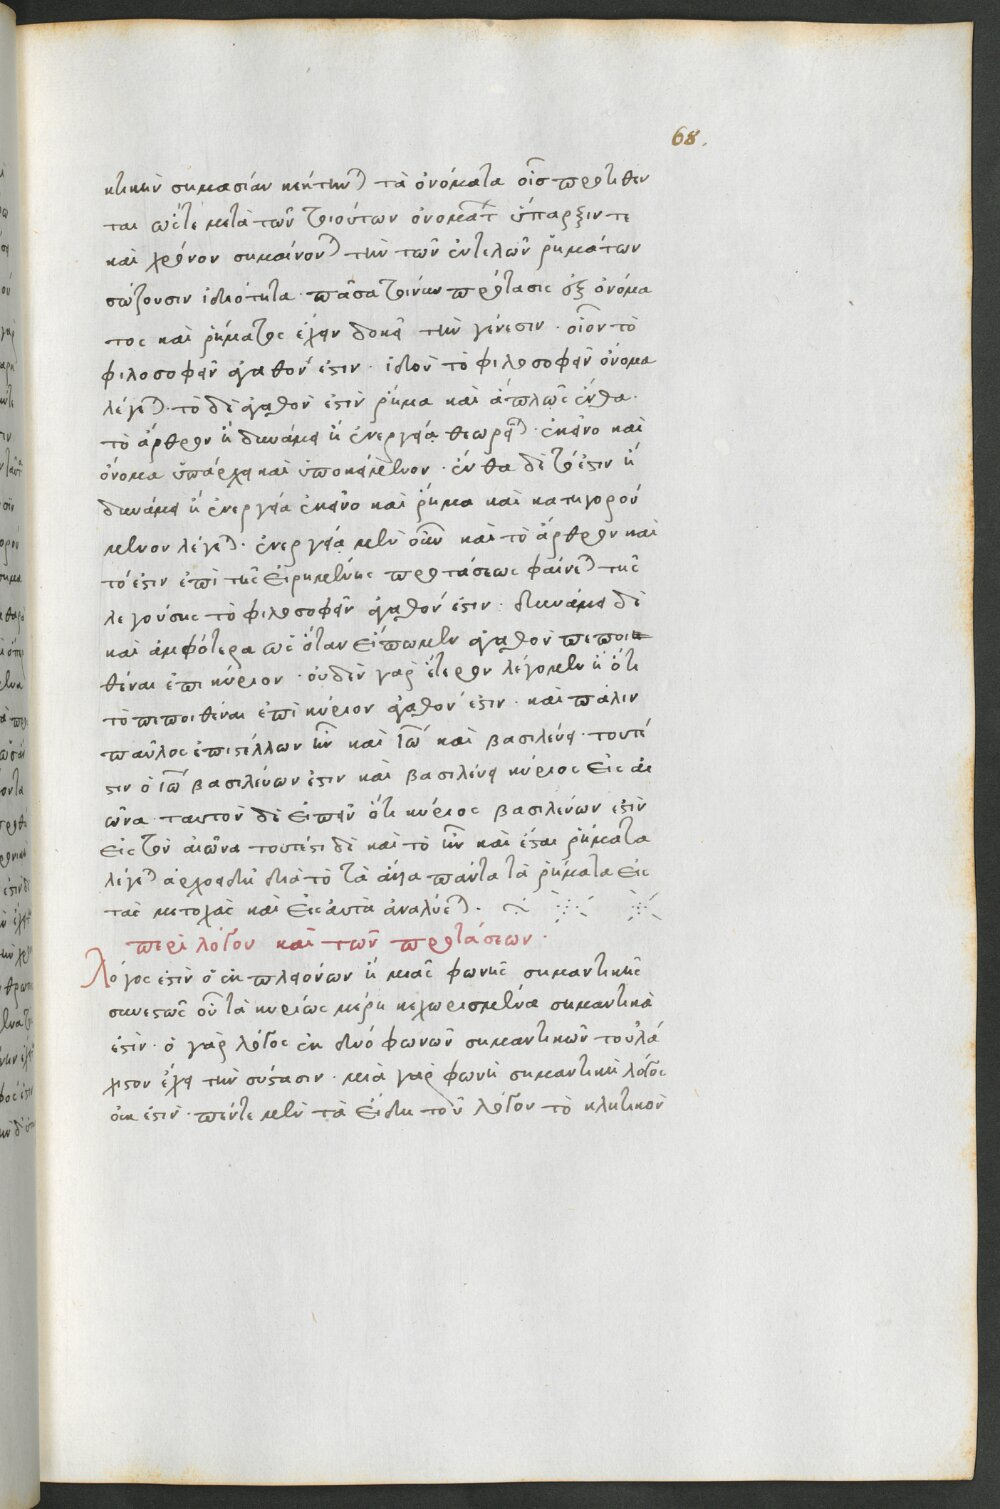 68.
κτικὴν σημασίαν κέκτηνται τὰ ὀνόματα οἷς προτίθεν
ται ὥστε μετὰ τῶν τοιούτων ὀνομάτ ὕπαρξιν τε
καὶ χρόνον σημαίνον την τῶν ἐντελῶν ῥημάτων
σώζουσιν ἰδιότητα· πᾶσα τοίνυν πρότασις ἐξ ὀνόμα
τος καὶ ῥήματος ἔχειν δοκεῖ τὴν γένεσιν· οἷον τὸ
φιλοσοφεῖν ἀγαθόν ἐστιν· ἰδοὺ τὸ φιλοσοφεῖν ὄνομα
λέγεται· τὸ δὲ ἀγαθὸν ἐστὶν ῥῆμα καὶ ἁπλῶς ἔνθα·
τὸ ἄρθρον ἢ δυνάμει ἢ ἐνεργείᾳ θεωρεῖται· ἐκεῖνο καὶ
ὄνομα ὑπάρχει καὶ ὑποκείμενον· ἔνθα δὲ τό ἐστιν ἢ
δυνάμει ἢ ἐνεργείᾳ ἐκεῖνο καὶ ῥῆμα καὶ κατηγορού
μενον λέγεται· ἐνεργείᾳ μὲν οὖν καὶ τὸ ἄρθρον καὶ
τό ἐστιν ἐπὶ τῆς εἰρημένης προτάσεως φαίνεται τῆς
λεγούσης τὸ φιλοσοφεῖν ἀγαθόν ἐστιν· δυνάμει δὲ
καὶ ἀμφότερα ὡς ὅταν εἴπωμεν ἀγαθὸν πεποι
θέναι ἐπι κύριον· οὐδὲν γὰρ ἕτερον λέγομεν ἢ ὅτι
τὸ πεποιθέναι ἐπὶ κύριον ἀγαθόν ἐστιν· καὶ πάλιν
παῦλος ἐπιστέλλων ἦν καὶ ἰῶ καὶ βασιλεύει· τουτέ
στιν ὁ ἰῶ βασιλεύων ἐστιν καὶ βασιλεύει κύριος εἰς αἰ
ῶνα· ταυτὸν δὲ εἰπεῖν ὅτι κύριος βασιλεύων ἐστὶν
εἰς τὸν αἰῶνα τουτέστι δὲ καὶ τὸ ἦν καὶ ἔσται ῥήματα
λέγεται ἀρχοειδῆ διὰ τὸ τὰ ἄλλα πάντα τὰ ῥήματα εἰς
τὰς μετοχὰς καὶ εἰς αὐτὰ ἀναλύεται·
περὶ λόγου καὶ τῶν προτάσεων·
Λόγος ἐστὶν ὁ ἐκ πλειόνων ἢ μιᾶς φωνῆς σημαντικῆς
συνεστὼς οὗ τὰ κυρίως μέρη κεχωρισμένα σημαντικὰ
ἐστιν· ὁ γὰρ λόγος ἐκ δυό φωνῶν σημαντικῶν τοὐλά
χιστον ἔχει τὴν σύστασιν· μιὰ γὰρ φωνὴ σημαντικὴ λόγος
οὐκ ἐστὶν· πέντε μὲν τὰ εἴδη τοῦ λόγου τὸ κλητικὸν